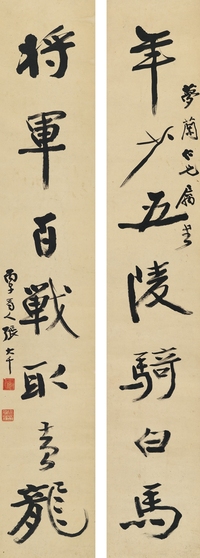 年少五陵騎白馬
夢蘭仁兄屬書
將軍百戰取黃龍
張大千